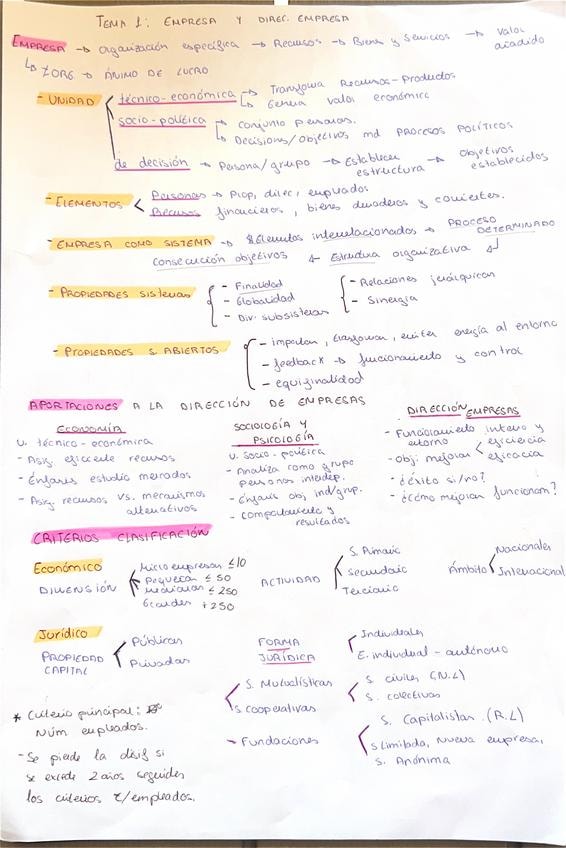 TEMA 1: EMPRESA Y DIREC. EMPRESA
EMPRESA → Organización específica → Recursos → Bienes y Servicios → Valor añadido
↳ ZORG → ÁNIMO DE LUCRO
- UNIDAD
técnico-económica → Transforma Recursos-Productos
↳ Genera valor económico
socio-política → Conjunto personas.
↳ Decisions/objetivos md PROCESOS POLÍTICOS
de decisión → Persona/grupo → Establecer estructura → Objetivos establecidos
- ELEMENTOS <
Personas → Prop, direc, empleados
Recursos financieros, bienes duraderos y corrientes.
- EMPRESA COMO SISTEMA → Elementos interrelacionados → PROCESO DETERMINADO
consecución objetivos ← Estructura organizativa ↲
- PROPIEDADES sistemas
- Finalidad
- Globalidad
- Div. subsistemas
- Relaciones jerárquicas
- Sinergia
- PROPIEDADES S. ABIERTOS
- importan, transforman, emiten energía al entorno
- feedback → funcionamiento y control
- equifinalidad
APORTACIONES A LA DIRECCIÓN DE EMPRESAS
ECONOMÍA
U. técnico-económica
- Asig. eficiente recursos
- Énfasis estudio mercados
- Asig. recursos VS. mecanismos alternativos
SOCIOLOGÍA Y PSICOLOGÍA
U. socio-política
- Analiza como grupo personas interdep.
- Énfasis obj ind/grup.
- Comportamiento y resultados
DIRECCIÓN EMPRESAS
- Funcionamiento interno y entorno
- Obj: mejorar < eficiencia
eficacia
- ¿éxito sí/no?
- ¿cómo mejorar funcionam?
CRITERIOS CLASIFICACIÓN
Económico
DIMENSIÓN
Micro empresas ≤10
Pequeñas ≤ 50
medianas ≤ 250
Grandes +250
ACTIVIDAD
S. Primario
Secundario
Terciario
Ámbito
Nacionales
Internacional
Jurídico
PROPIEDAD CAPITAL
Públicas
Privadas
FORMA JURÍDICA
Individuales
E. individual - autónomo
S. Mutualísticas
S cooperativas
- Fundaciones
S. civiles (N.L)
S. colectivas
S. Capitalistas (R.L)
S Limitada, Nueva empresa,
S. Anónima
* Criterio principal:
Núm empleados.
- Se pierde la clasif si
se excede 2 años seguidos
los criterios t/empleados.